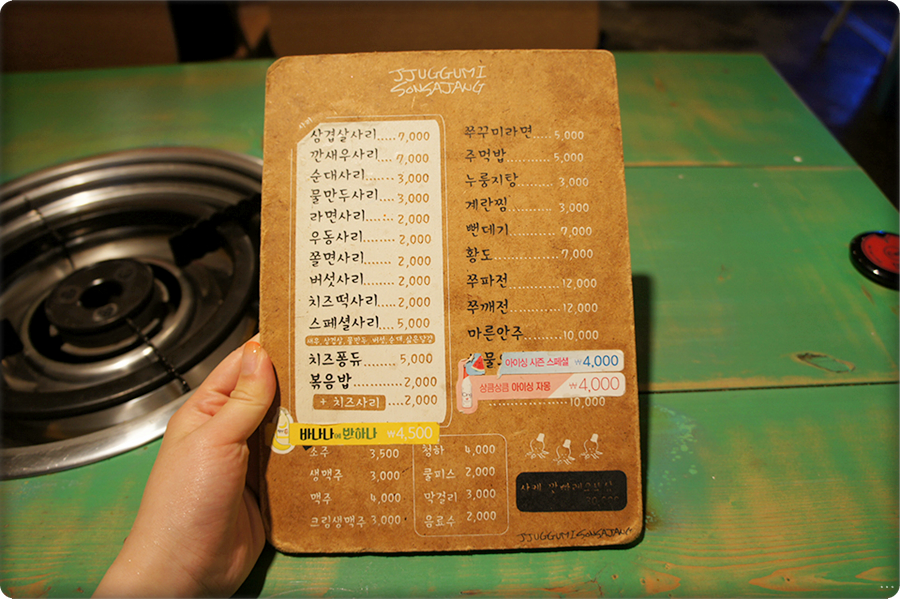 JJUGGUMI
SONSAJANG
사리
삼겹살사리.....7,000
깐새우사리....7,000
순대사리........3,000
물만두사리....3,000
라면사리.......2,000
우동사리........2,000
쫄면사리........2,000
버섯사리........2,000
치즈떡사리....2,000
스페셜사리....5,000
치즈퐁듀........5,000
볶음밥............2,000
+ 치즈사리 .....2,000
쭈꾸미라면.....5,000
주먹밥............5,000
누룽지탕........3,000
계란찜............3,000
뻔데기............7,000
황도................7,000
쭈파전............12,000
쭈깨전............12,000
마른안주........10,000
아이싱 시즌 스페셜 ₩4,000
상큼상큼 아이싱 자몽 ₩4,000
10,000
바나나에 반하나 ₩4,500
소주 3,500
생맥주 3,000
맥주 4,000
크림생맥주 3,000
청하 4,000
쿨피스 2,000
막걸리 3,000
음료수 2,000
JJUGGUMISONSAJANG